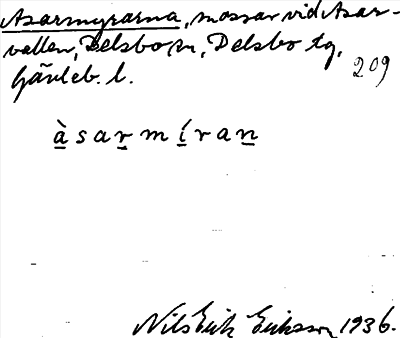 Asarmyrarna, mossar vid Asar-
vallen, Delsbo sn, Delsbo tg,
Gävleb. l.
209
àsarmíran
Nils Erik Eriksson 1936.